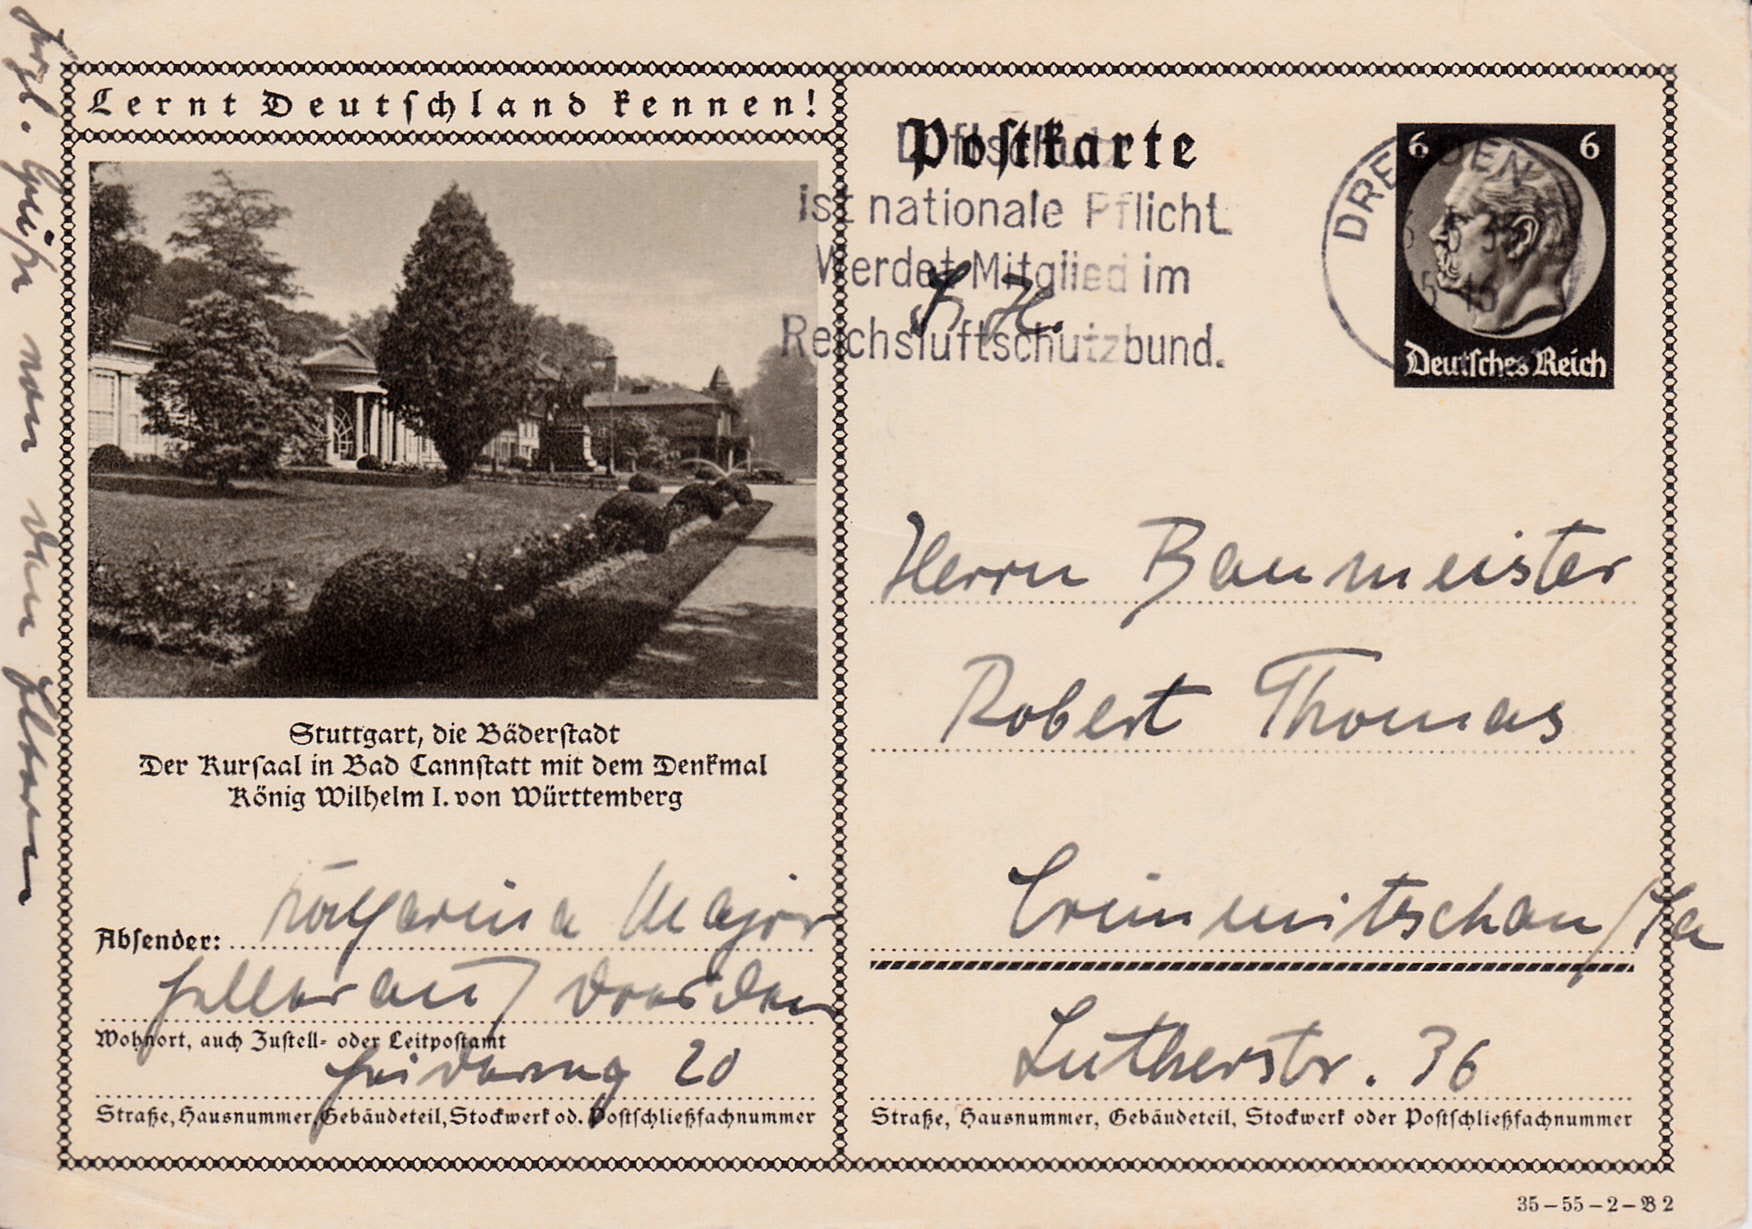 Lernt Deutschland kennen!
Stuttgart, die Bäderstadt
Der Kursaal in Bad Cannstatt mit dem Denkmal
König Wilhelm I. von Württemberg
Absender: Katharina Major
Hellerau / Dresden
Wohnort, auch Zustell- oder Leitpostamt
Heideweg 20
Straße, Hausnummer, Gebäudeteil, Stockwerk od. Postschließfachnummer
herzl. Grüße von den Eltern
Postkarte
Luftschutz
ist nationale Pflicht
Werdet Mitglied im
Reichsluftschutzbund.
DRESDEN
6 6
Deutsches Reich
Herrn Baumeister
Robert Thomas
Crimmitschau / Sa
Lutherstr. 36
Straße, Hausnummer, Gebäudeteil, Stockwerk oder Postschließfachnummer
35–55–2–B 2